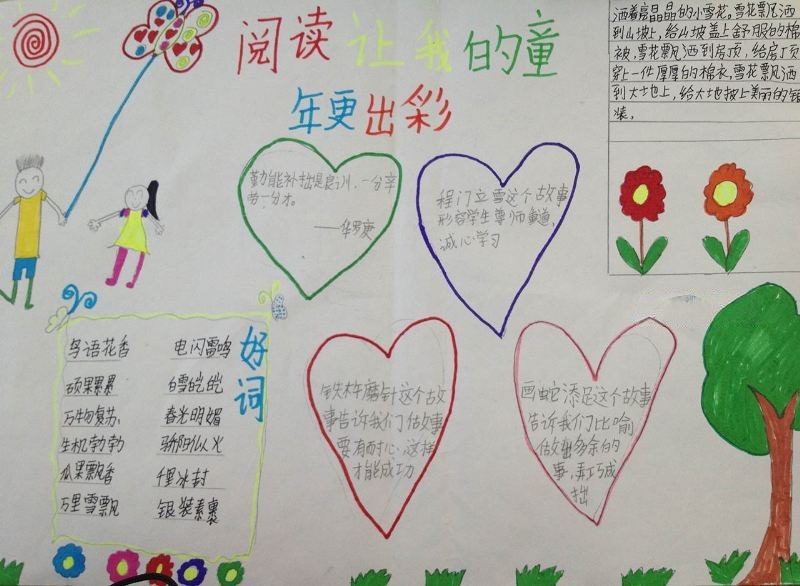 阅读让我的童
年更出彩
洒着亮晶晶的小雪花。雪花飘洒
到山坡上,给山坡盖上舒服的棉
被,雪花飘洒到房顶,给房顶
穿上一件厚厚的棉衣,雪花飘洒
到大地上,给大地披上美丽的银
装。
勤能补拙是良训,一分辛
劳一分才。
——华罗庚
程门立雪这个故事
形容学生尊师重道,
诚心学习
好词
鸟语花香 电闪雷鸣
硕果累累 白雪皑皑
万物复苏 春光明媚
生机勃勃 骄阳似火
瓜果飘香 千里冰封
万里雪飘 银装素裹
铁杵磨针这个故
事告诉我们做故事
要有耐心,这样
才能成功
画蛇添足这个故事
告诉我们比喻
做出多余的
事,弄巧成
拙